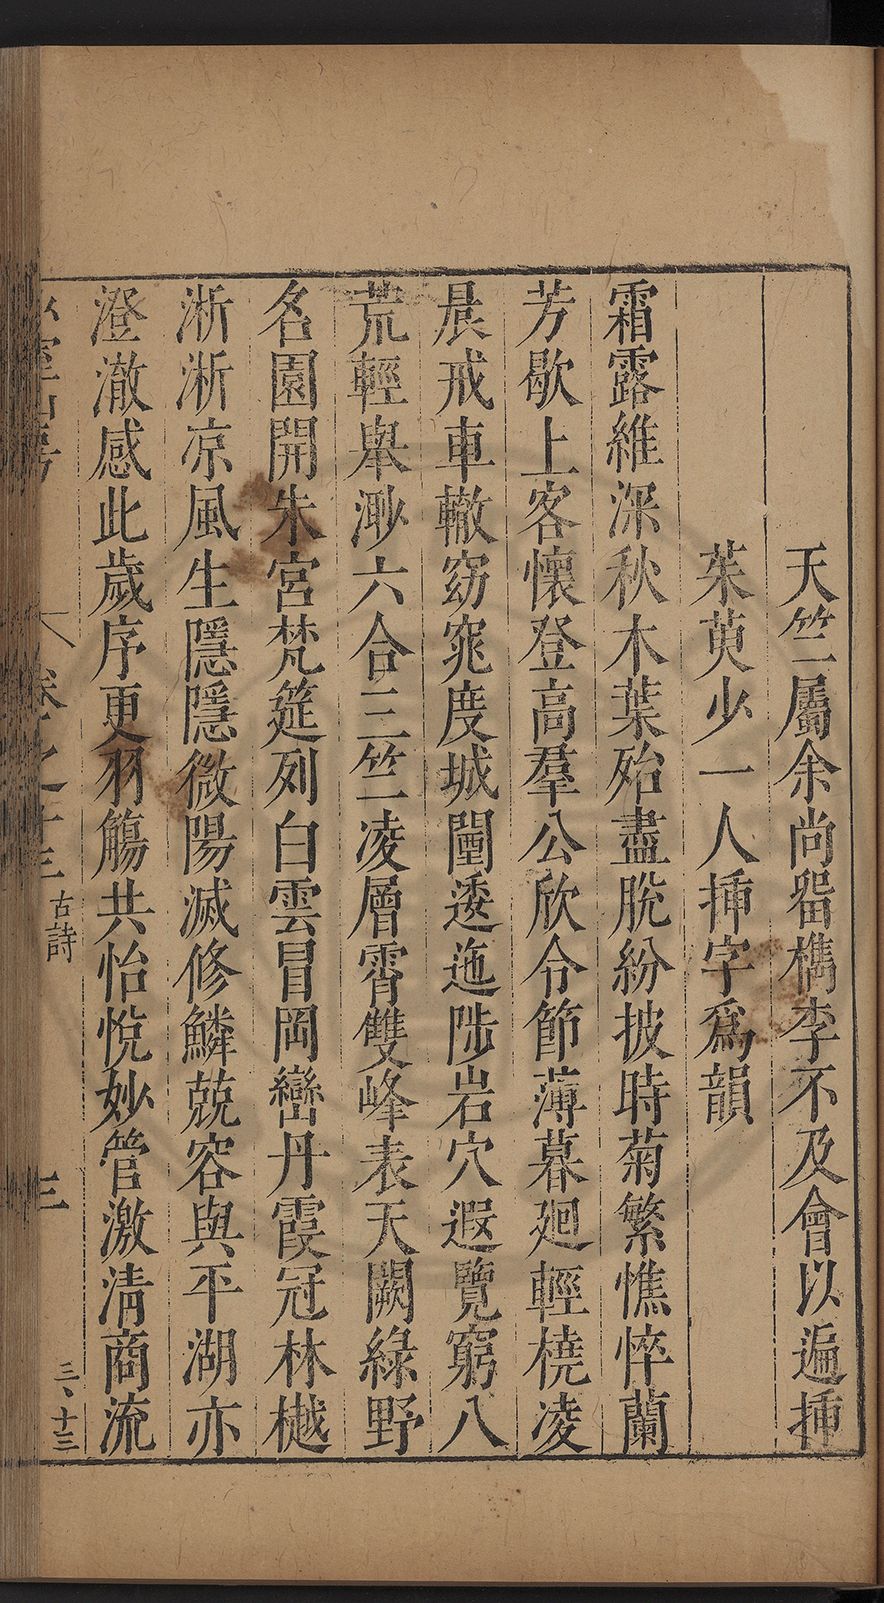 天竺屬余尚畱檇李不及會以遍揷
茱萸少一人揷字爲韻
霜露維深秋木葉殆盡脫紛披時菊繁憔悴蘭
芳歇上客懷登高羣公欣令節薄暮廻輕橈凌
晨戒車轍窈窕度城闉逶迤陟岩穴遐覽窮八
荒輕舉渺六合三竺凌層霄雙峰表天闕綠野
名園開朱宮梵筵列白雲冒岡巒丹霞冠林樾
淅淅凉風生隱隱微陽滅修鱗兢容與平湖亦
澄澈感此歲序更羽觴共怡悅妙管激淸商流
卷之十三 古詩 三
三、十三